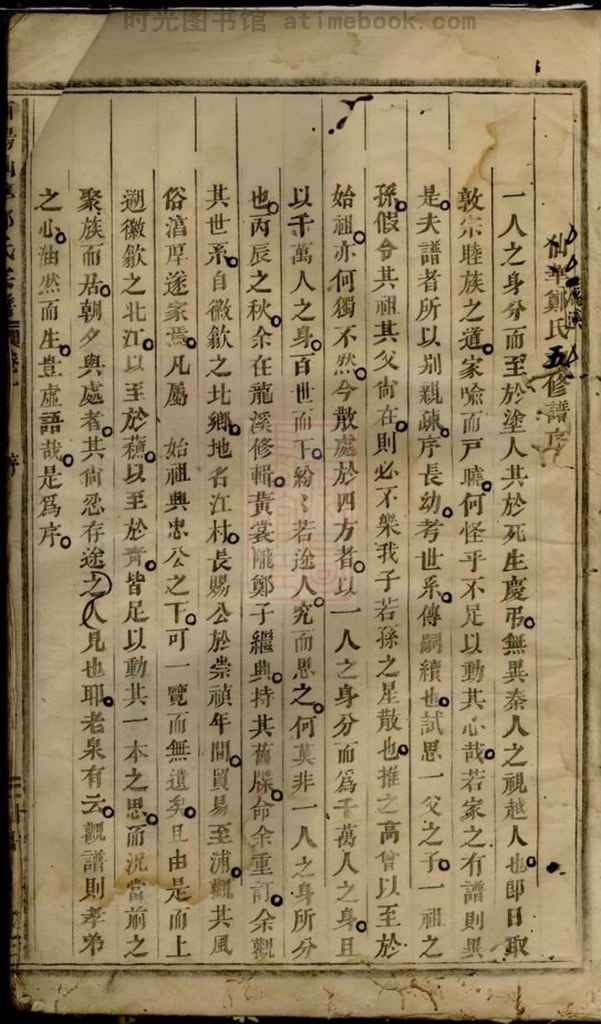 时光图书馆 atimebook.com
仙華鄭氏五修譜序
一人之身分而至於塗人其於死生慶弔無異秦人之視越人也即日取
敦宗睦族之道家喻而戸曉何怪乎不足以動其心哉若家之有譜則異
是夫譜者所以别親疎序長幼考世系傳嗣續也試思一父之子一祖之
孫假令其祖其父尙在則必不樂我子若孫之星散也推之高曾以至於
始祖亦何獨不然今散處於四方者以一人之身分而爲千萬人之身且
以千萬人之身百世而下紛〻若途人究而思之何莫非一人之身所分
也丙辰之秋余在龍溪修輯黃裳隴鄭子繼典持其舊牒命余重訂余觀
其世系自徽歙之北鄉地名江村長賜公於崇禎年間貿易至浦觀其風
俗淳厚遂家焉凡屬 始祖興忠公之下可一覽而無遺矣且由是而上
遡徽歙之北江以至於蘓以至於靑皆足以動其一本之思而況當前之
聚族而居朝夕與處者其尙忍存途之人見也耶老泉有云觀譜則孝弟
之心油然而生豈虛語哉是爲序